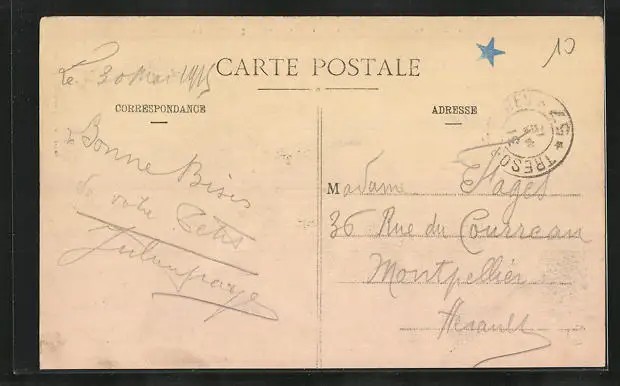 Le 30 Mai 1915
CARTE POSTALE
10
CORRESPONDANCE
Bonne Bises
de votre
ADRESSE
TRESOR
57
Madame Flages
36 Rue du Courreau
Montpellier
Herault